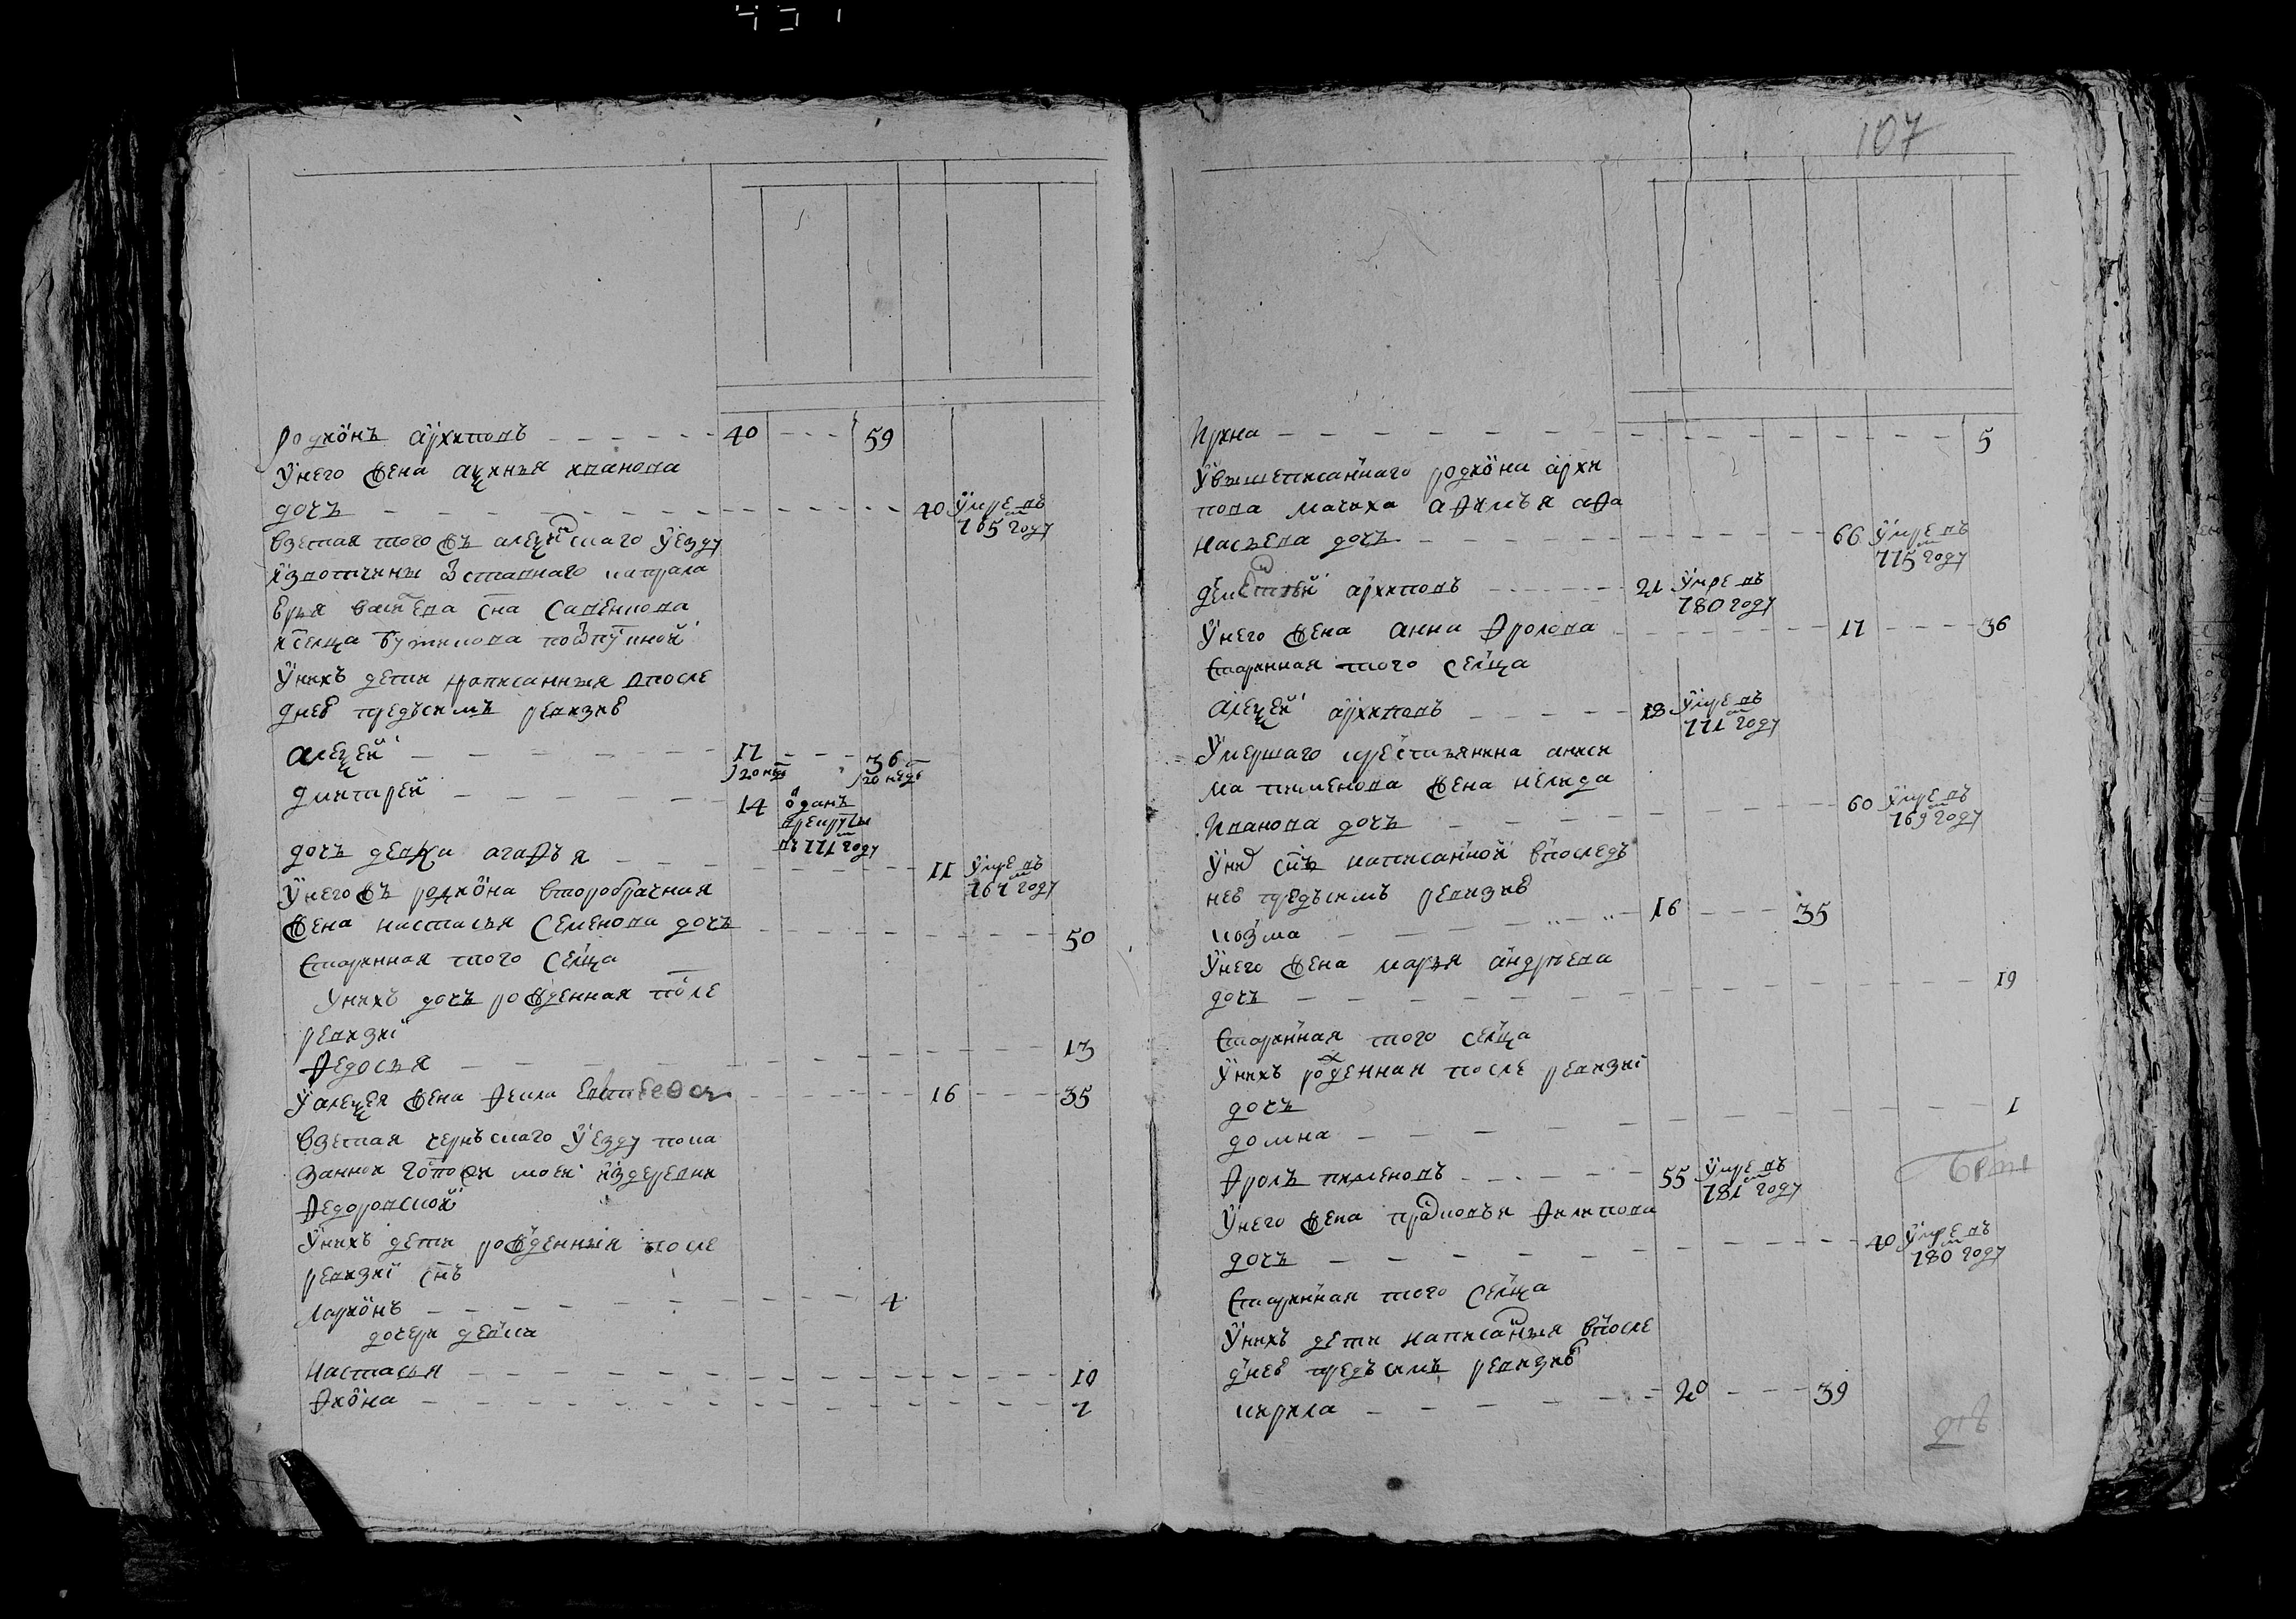 107
родионъ архиповъ 40 59
у него жена аксинья иванова
дочь 40 умре въ
765м году
взетая того жъ алексинскаго уезду
извотчины отставнаго капрала
сна савенкова
села
у нихъ дети написанныя впосле
дней предъ симъ ревизие
алексей 17 36
20 недъ 20 недъ
дмитрей 14 отданъ
в рекруты
въ 771м году
дочь девка агафья 11 умре въ
767м году
у него жъ родиона второбрачная
жена настасья семенова дочь 50
старинная того селца
у нихъ дочь рожденная после
ревизиi
федосья 13
у алексея жена фекла 16 35
взетая чернскаго уезду пока
занной моей издеревни
федоровской
у нихъ дети рожденныя после
ревизиi снъ
ларионъ 4
дочери девки
настасья 10
фиона 7
ирина 5
у вышеписаннаго родиона архи
пова мачиха афимья афа
насьева дочь 66 умре въ
775м году
дементей архиповъ 21 умре въ
780 году
у него жена анна фролова 17 36
старинная того селца
алексей архиповъ 13 умре въ
771м году
умершаго крестьянина аниси
ма пименова жена
иванова дочь 60 умре въ
769м году
у ние снъ написанной впоследъ
ней предъ симъ ревизие
козма 16 35
у него жена марья андреева
дочь 19
старинная того селца
у нихъ рожденная после ревизиi
дочь 1
домна
фролъ пименовъ 55 умре въ
781м году
у него жена прасковья филипова
дочь 40 умре въ
780м году
старинная того селца
у нихъ дети написанныя впосле
дней предъ симъ ревизие
кирила 20 39